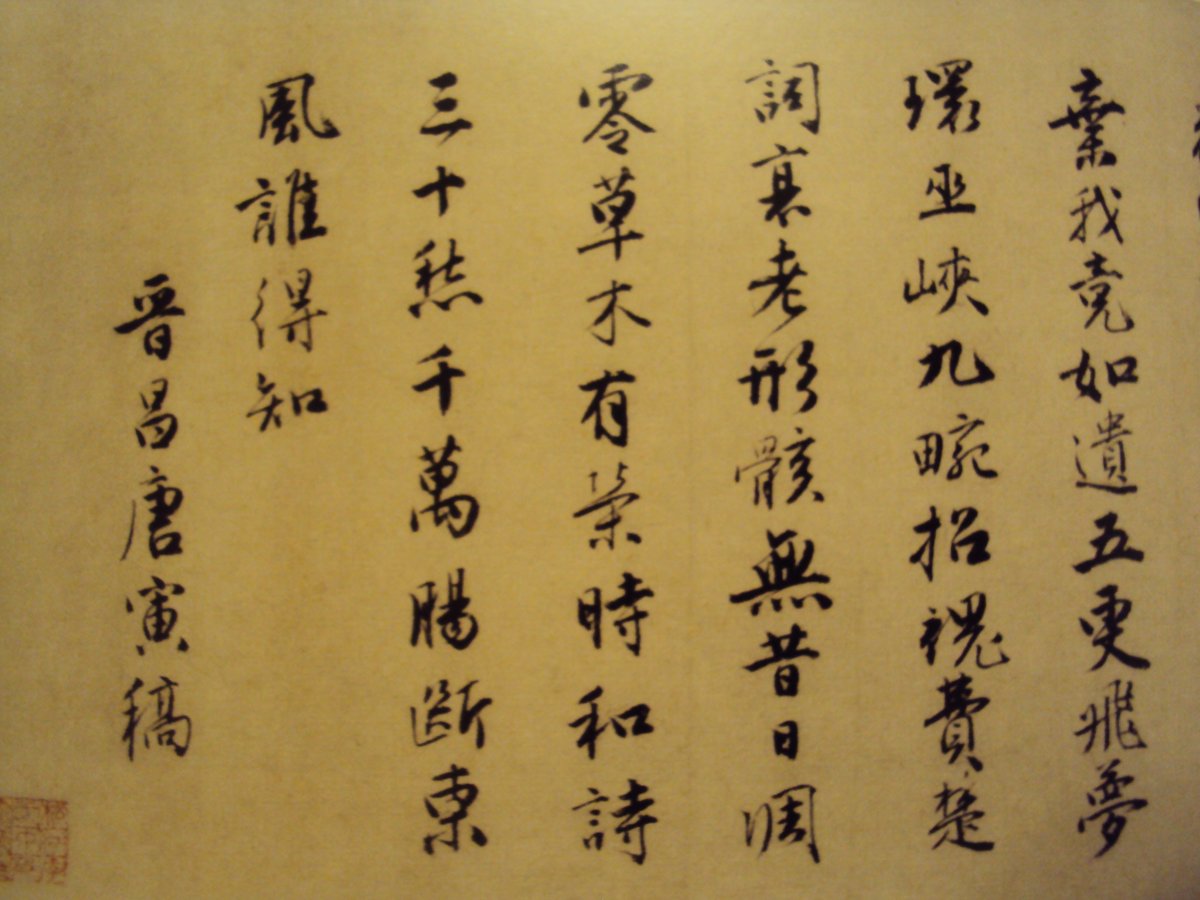 棄我竟如遺五更飛夢
環巫峽九畹招魂費楚
詞衰老形骸無昔日凋
零草木有榮時和詩
三十愁千萬腸斷東
風誰得知
晉昌唐寅稿